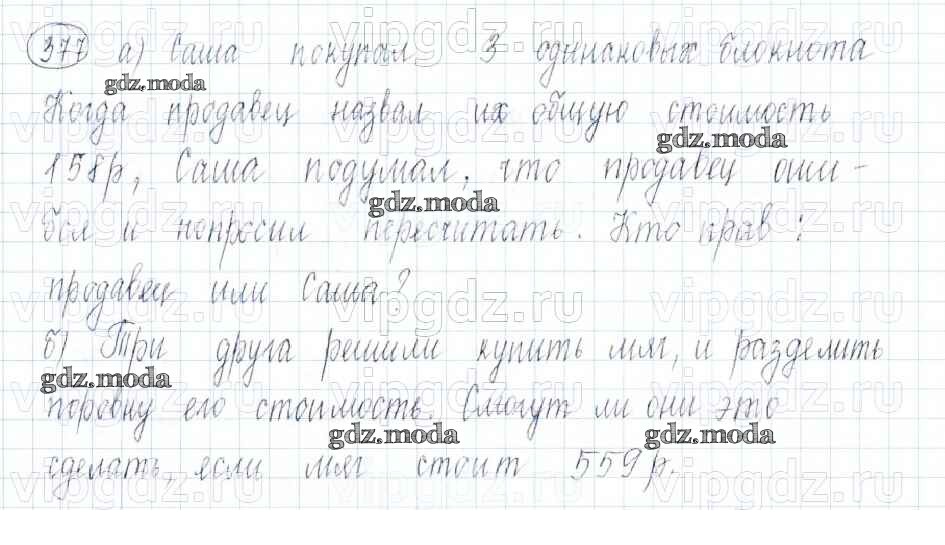 377 а) Саша покупал 3 одинаковых блокнота
gdz.moda
Когда продавец назвал их общую стоимость
gdz.moda
158р, Саша подумал, что продавец оши-
gdz.moda
бся и попросил пересчитать. Кто прав?
продавец или Саша?
б) Три друга решили купить мяг, и разделить
gdz.moda
поровну его стоимость. Смогут ли они это
gdz.moda gdz.moda
сделать, если мяг стоит 559р.
vipgdz.ru